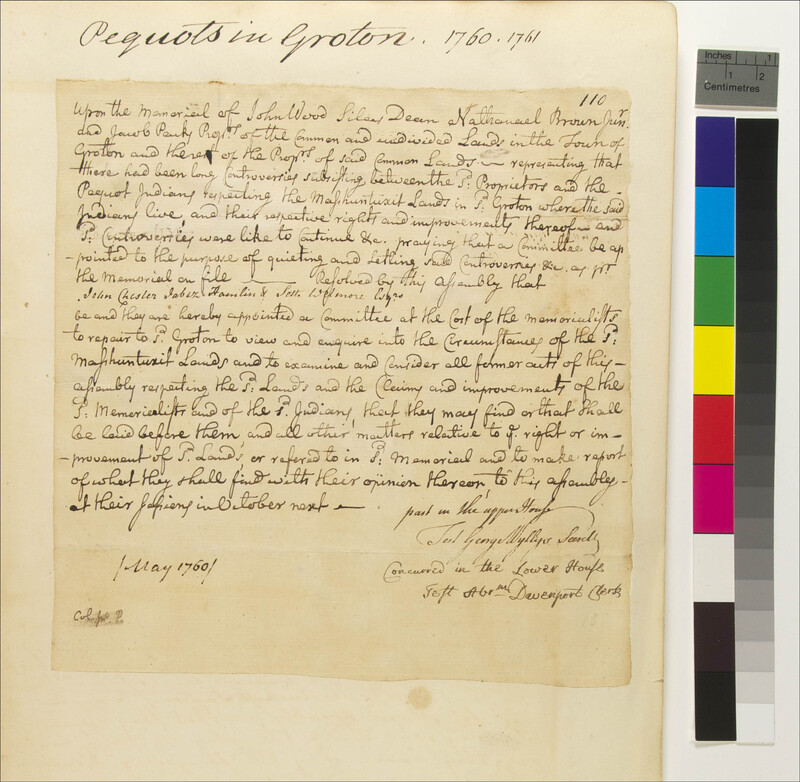 Pequots in Groton. 1760. 1761
110
Upon the Memorial of John Wood Silas Dean Nathanael Brown Junr.
and Jacob Parks Proprs. of the Common and undivided Lands in the Town of
Groton and the rest of the Proprs. of said Common Lands — representing that
there had been long Controversies subsisting between the Sd. Proprietors and the
Pequot Indians respecting the Mashuntuxit Lands in Sd. Groton where the said
Indians live, and their respective rights and improvements thereof — and
Sd. Controversies were like to Continue &c. praying that a Committee be ap
-pointed to the purpose of quieting and Setling said Controversies &c. as pr.
the Memorial on file — Resolved by this Assembly that
John Chester Jabez Hamlin & Seth Wetmore Esqrs
be and they are hereby appointed a Committee at the Cost of the memorialists
to repair to Sd. Groton to view and enquire into the Circumstances of the Sd.
Mashuntuxit Lands and to examine and Consider all former acts of this —
assembly respecting the Sd. Lands and the Claims and improvements of the
Sd. Memorialists and of the Sd. Indians, that they may find or that Shall
be laid before them and all other matters relative to ye. right or im-
-provement of Sd. Lands, or refered to in Sd. Memorial and to make report
of what they shall find with their opinion thereon to this assembly —
at their Sessions in October next —
past in the upper House
Test George Wyllys Secrety
Concurred in the Lower House
Test Abrm. Davenport Clerk
[May 1760]